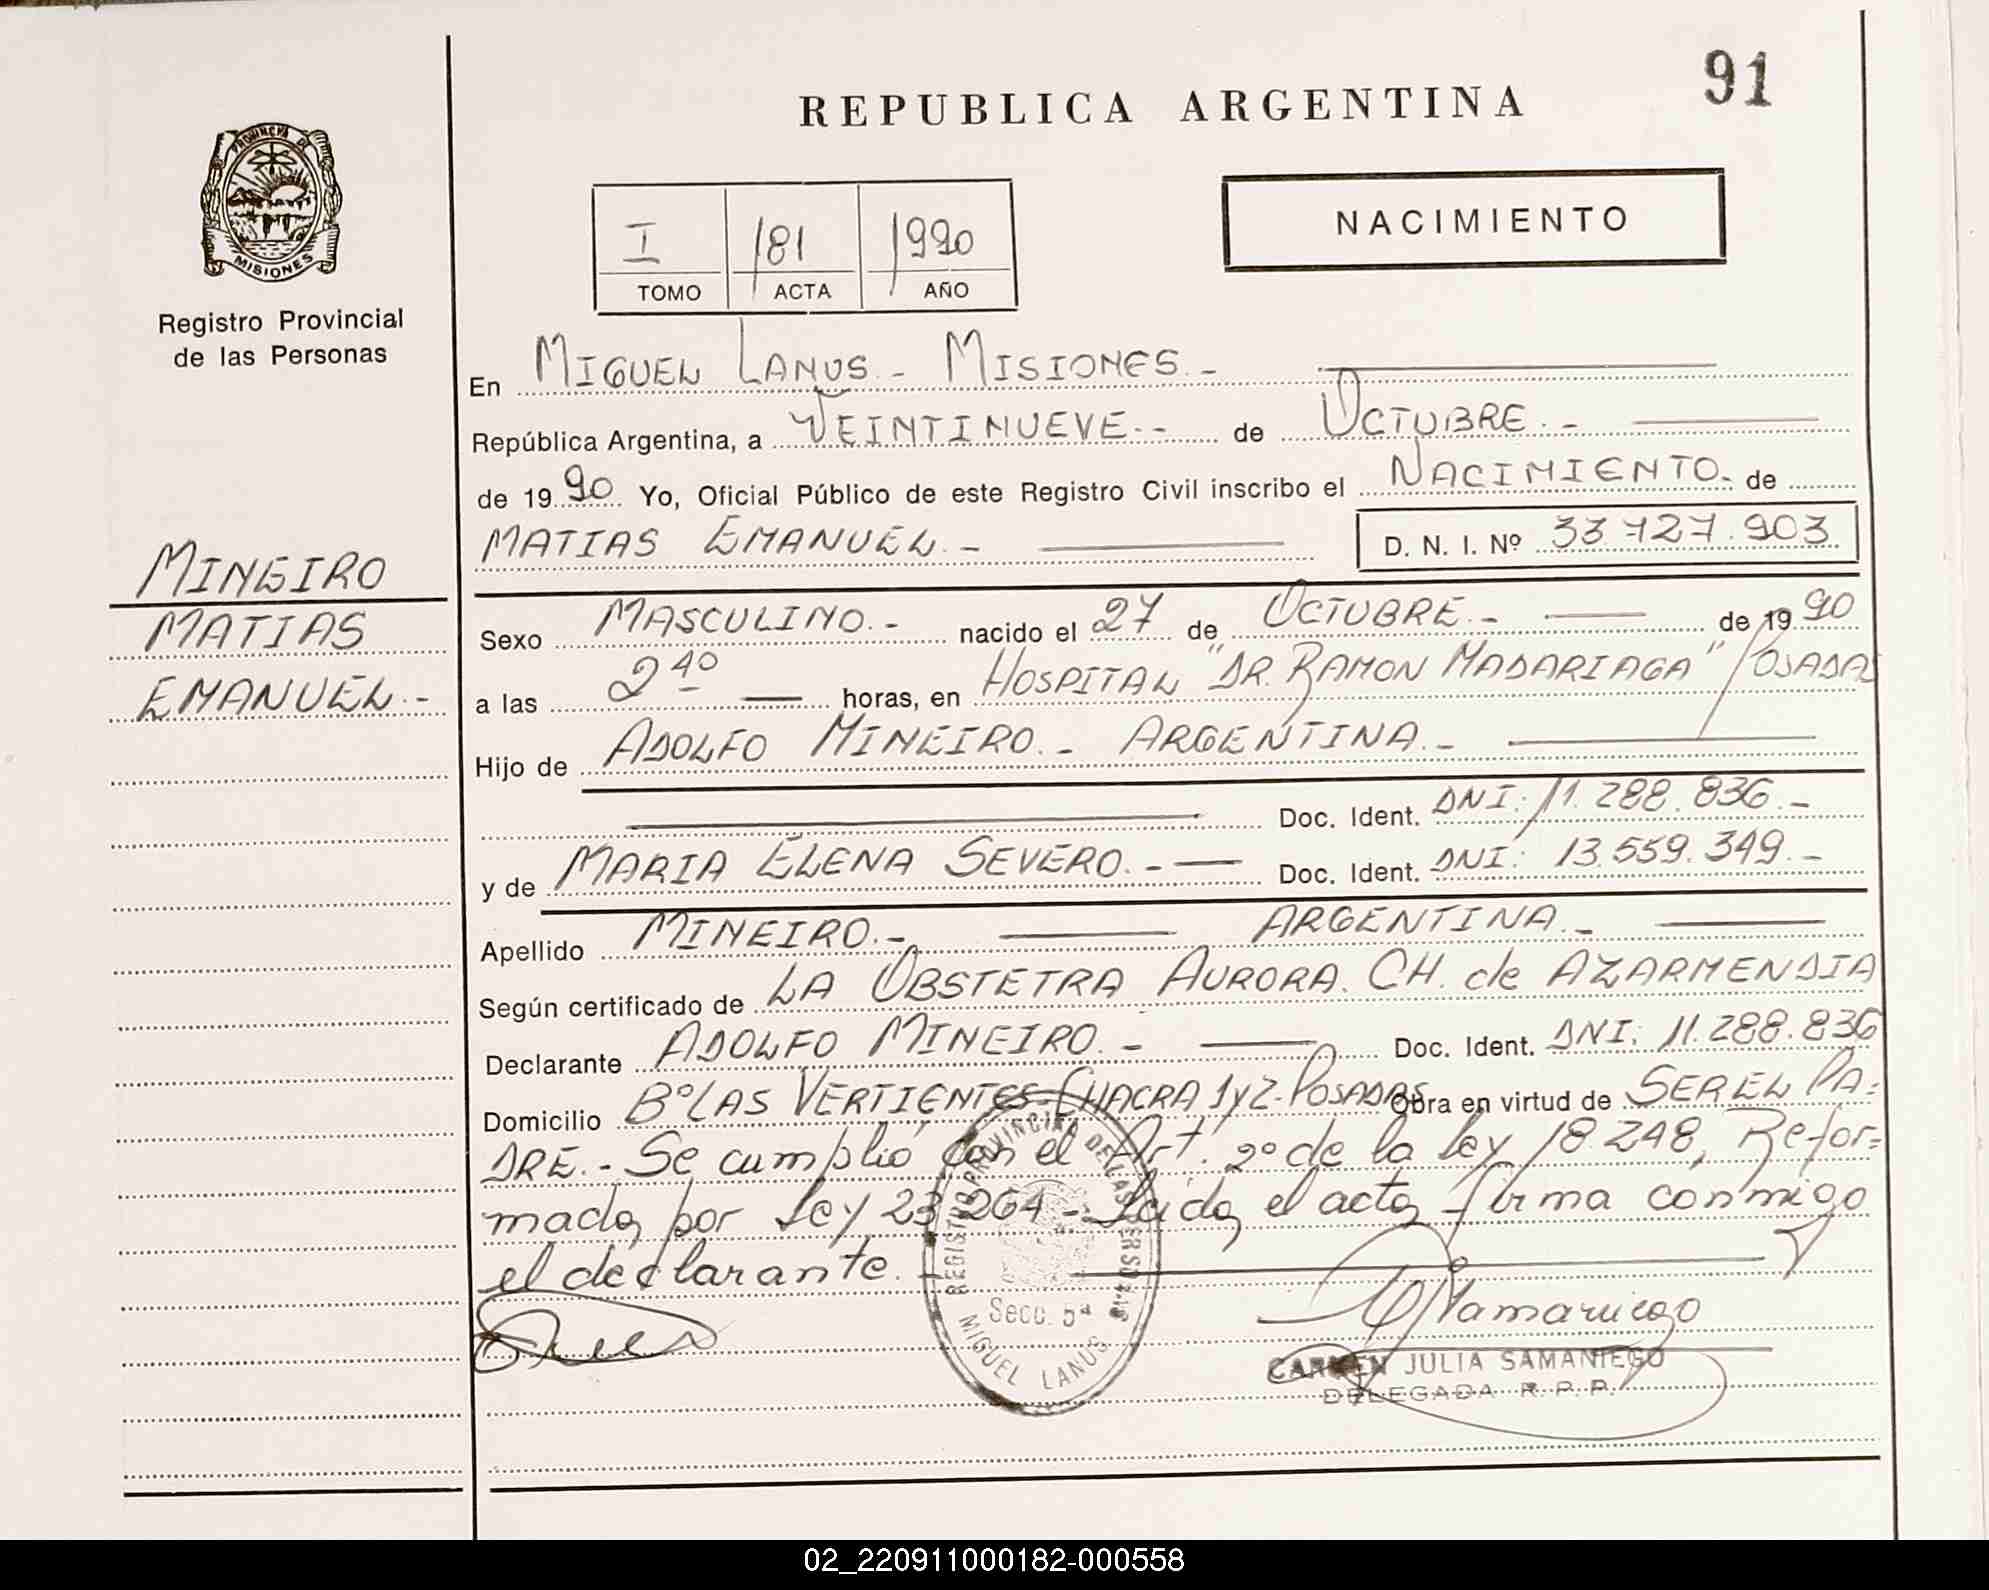 91
REPUBLICA ARGENTINA
PROVINCIA DE
MISIONES
Registro Provincial
de las Personas
I 181 1990
TOMO ACTA AÑO
NACIMIENTO
En MIGUEL LANUS - MISIONES.-
República Argentina, a VEINTINUEVE.- de OCTUBRE.-
de 1990 Yo, Oficial Público de este Registro Civil inscribo el NACIMIENTO- de
MATIAS EMANUEL.- D. N. I. Nº 33.727.903.
MINEIRO
MATIAS
EMANUEL.-
Sexo MASCULINO.- nacido el 27 de OCTUBRE.- de 1990
a las 2 40 horas, en HOSPITAL "DR. RAMON MADARIAGA" POSADAS
Hijo de ADOLFO MINEIRO.- ARGENTINA.-
Doc. Ident. DNI: 11.288.836.-
y de MARIA ELENA SEVERO.- Doc. Ident. DNI: 13.559.349.-
Apellido MINEIRO.- ARGENTINA.-
Según certificado de LA OBSTETRA AURORA. CH. de AZARMENDIA
Declarante ADOLFO MINEIRO.- Doc. Ident. DNI: 11.288.836
Domicilio Bº LAS VERTIENTES-CHACRA 1y2-POSADAS Obra en virtud de SER EL PA=
DRE.- Se cumplió con el Art. 2º de la ley 18.248, Refor=
mada por Ley 23.264 - Leída el acta firma conmigo
el declarante.
REGISTRO PROVINCIAL DE LAS PERSONAS
Secc. 5ª
MIGUEL LANUS
CARMEN JULIA SAMANIEGO
DELEGADA R. P. P.
02_220911000182-000558